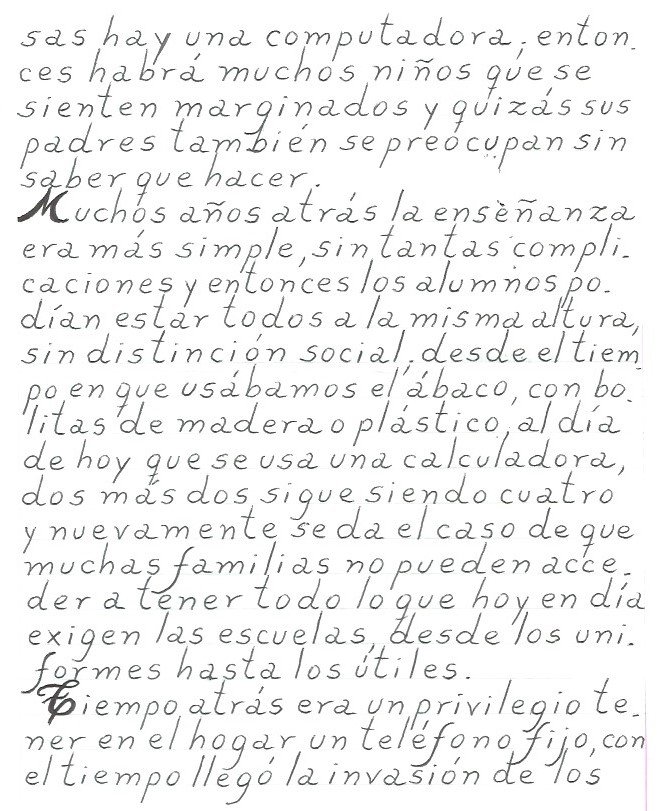 sas hay una computadora, enton-
ces habrá muchos niños que se
sienten marginados y quizás sus
padres también se preocupan sin
saber que hacer.
Muchos años atrás la enseñanza
era más simple, sin tantas compli-
caciones y entonces los alumnos po-
dían estar todos a la misma altura,
sin distinción social, desde el tiem
po en que usábamos el ábaco, con bo-
litas de madera o plástico, al día
de hoy que se usa una calculadora,
dos más dos sigue siendo cuatro
y nuevamente se da el caso de que
muchas familias no pueden acce-
der a tener todo lo que hoy en día
exigen las escuelas, desde los uni-
formes hasta los útiles.
Tiempo atrás era un privilegio te-
ner en el hogar un teléfono fijo, con
el tiempo llegó la invasión de los